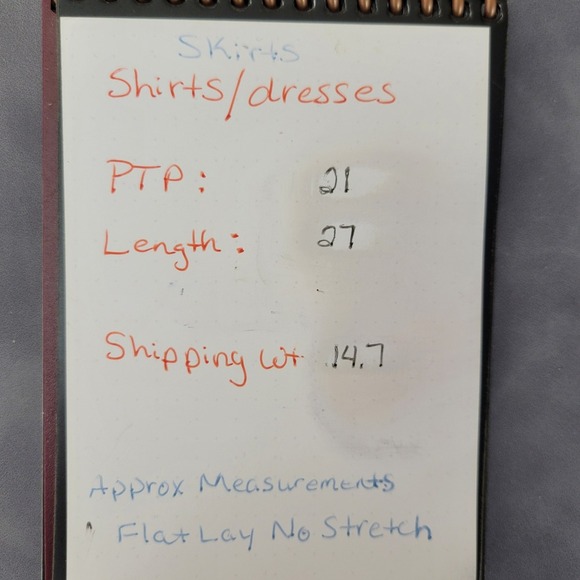 Skirts
Shirts/dresses
PTP: 21
Length: 27
Shipping Wt 14.7
Approx Measurements
Flat Lay No Stretch